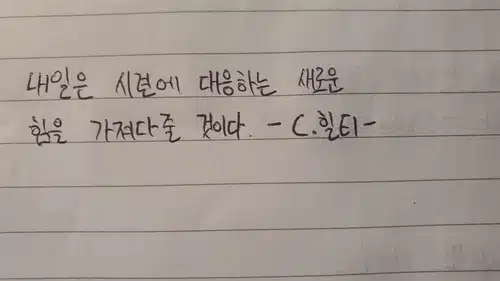 내일은 시련에 대응하는 새로운
힘을 가져다줄 것이다. - C.힐티-